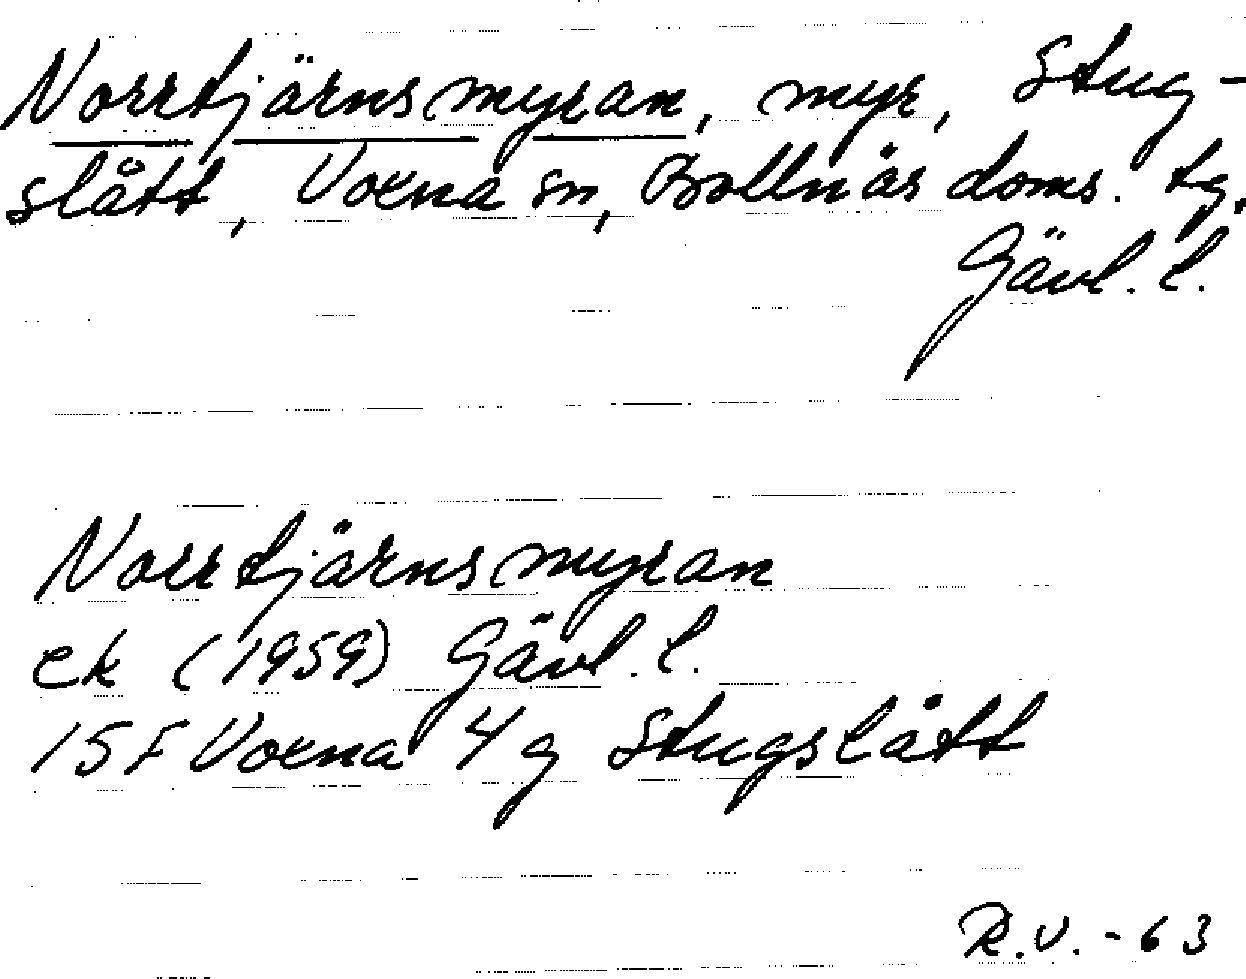 Norrtjärnsmyran, myr, Stug-
slått, Voxna sn, Bollnäs doms. tg,
Gävl. l.
Norrtjärnsmyran
ek (1959) Gävl. l.
15F Voxna 4 g Stugslått
R.V. - 63